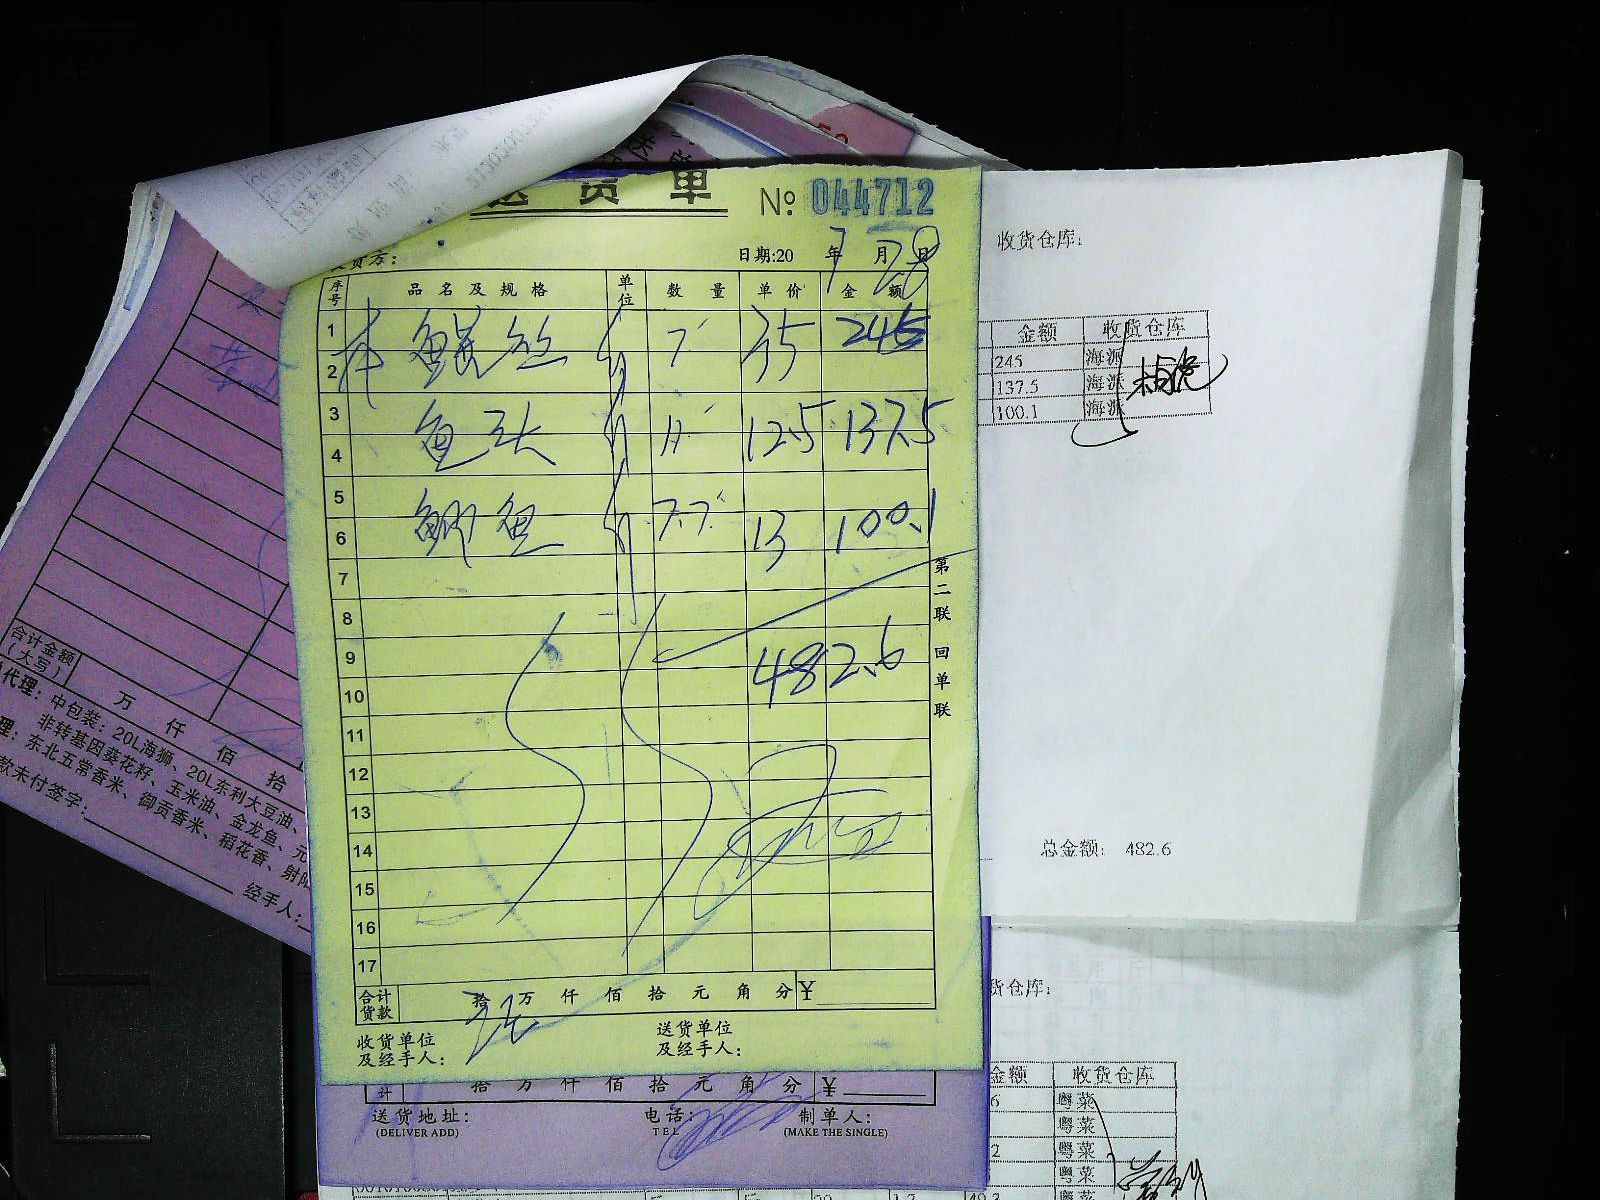 送货单 № 044712
日期:20 年 7 月 28 日
序号 品名及规格 单位 数量 单价 金额
1
鱼丝 斤 7 35 245
2
3
鱼头 斤 11 12.5 137.5
4
5
鲫鱼 斤 7.7 13 100.1
6
7
8
9
482.6
10
11
12
13
14
15
16
17
第二联 回单联
合计货款 拾 万 仟 佰 拾 元 角 分 ¥
收货单位及经手人:
送货单位及经手人:
计 拾 万 仟 佰 拾 元 角 分 ¥
送货地址: 电话: 制单人:
(DELIVER ADD) TEL (MAKE THE SINGLE)
收货仓库:
金额 收货仓库
245 海派
137.5 海派
100.1 海派
总金额: 482.6
货仓库:
金额 收货仓库
6 粤菜
粤菜
2 粤菜
粤菜
49.3 粤菜
合计金额(大写) 万 仟 佰 拾
代理: 中包装: 20L海狮、20L东利大豆油、
非转基因葵花籽、玉米油、金龙鱼、元
理: 东北五常香米、御贡香米、稻花香、射阳
款未付签字:
经手人: